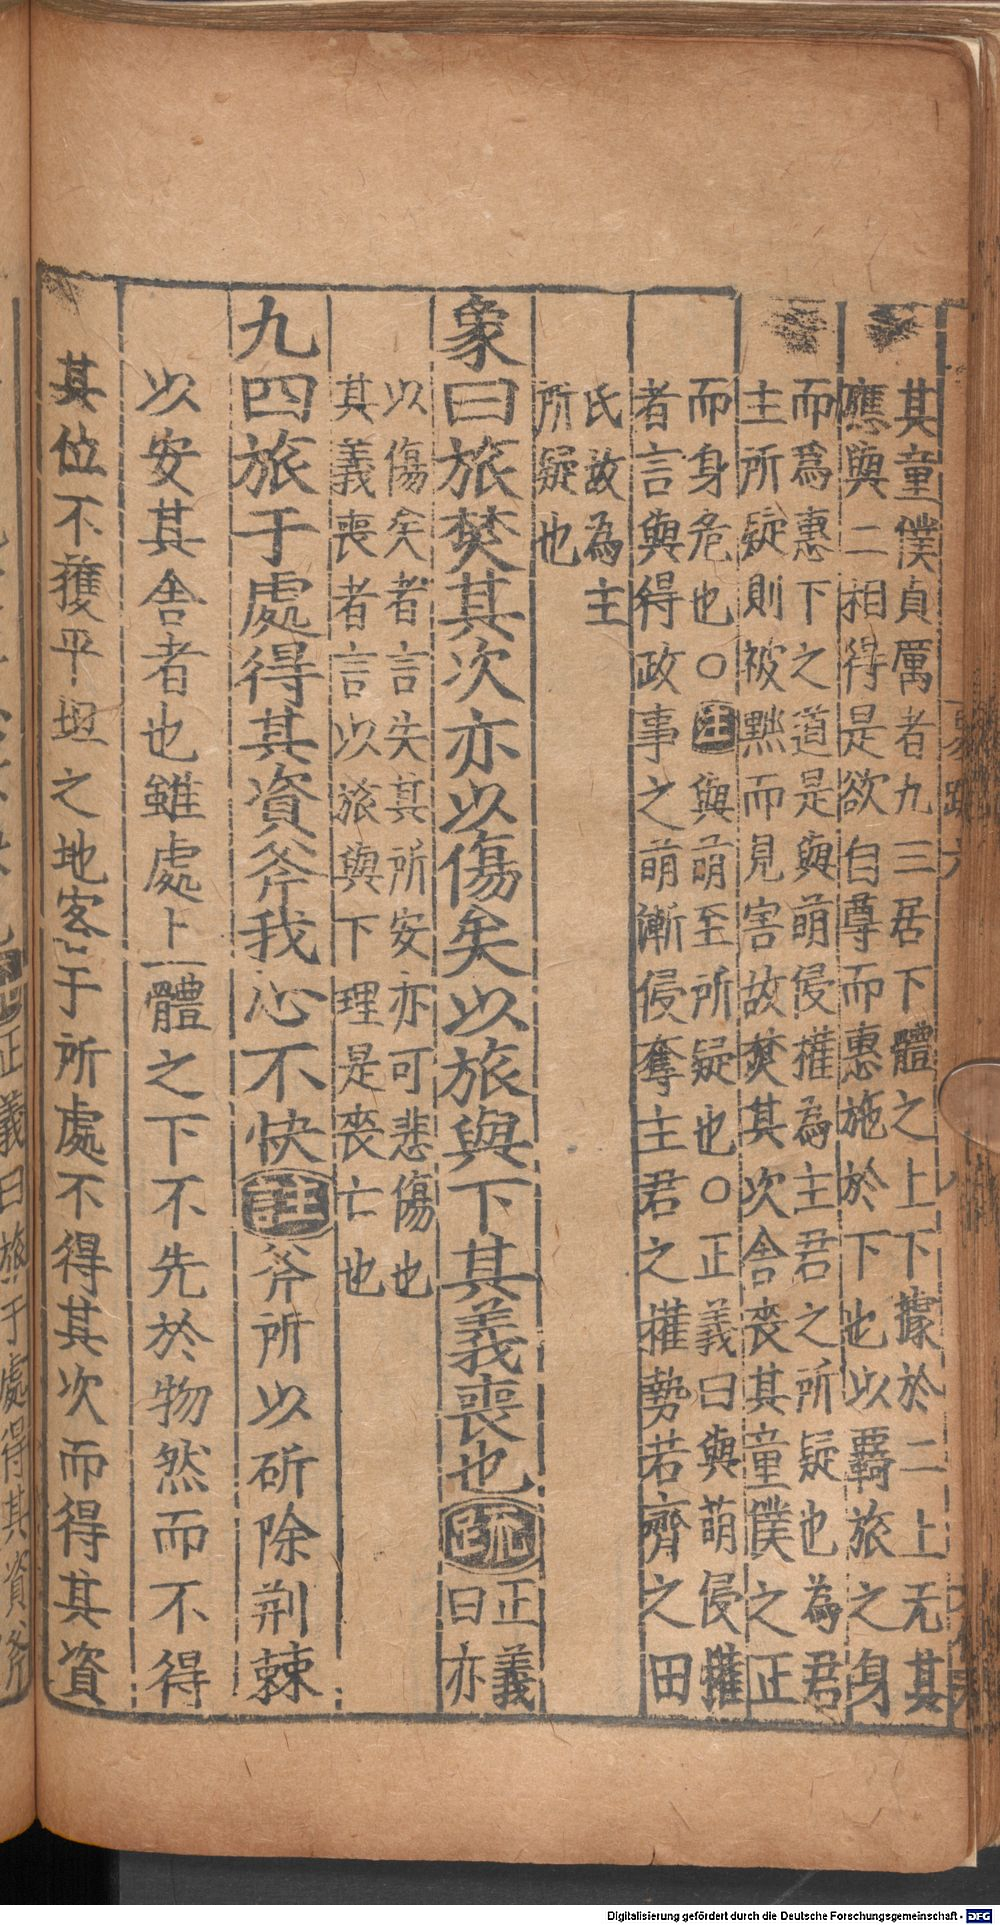 其童僕貞厲者九三居下體之上下據於二上无其
應與二相得是欲自尊而惠施於下也以羇旅之身
而爲惠下之道是與萌侵權為主君之所疑也為君
主所疑則被黜而見害故焚其次舍喪其童僕之正
而身危也○注與萌至所疑也○正義曰與萌侵權
者言與得政事之萌漸侵奪主君之權勢若齊之田
氏故為主
所疑也
象曰旅焚其次亦以傷矣以旅與下其義喪也疏正義
曰亦
以傷矣者言失其所安亦可悲傷也
其義喪者言以旅與下理是喪亡也
九四旅于處得其資斧我心不快註斧所以斫除荊棘
以安其舍者也雖處上體之下不先於物然而不得
其位不獲平坦之地客于所處不得其次而得其資
正義曰旅于處得其資斧
Digitalisierung gefördert durch die Deutsche Forschungsgemeinschaft - DFG